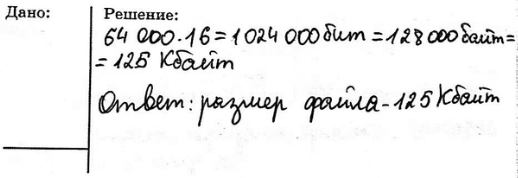 Дано:
Решение:
64 000 · 16 = 1024 000 бит = 128 000 байт =
= 125 Кбайт
Ответ: размер файла - 125 Кбайт